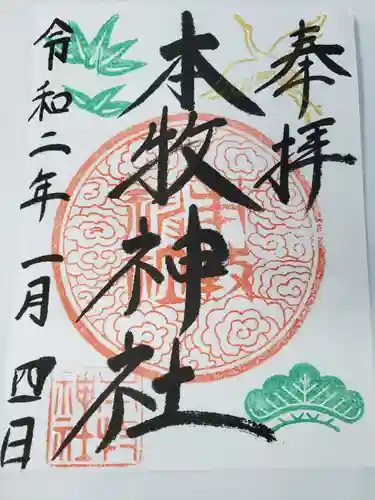 奉拝
本牧神社
令和二年一月四日
本牧神社